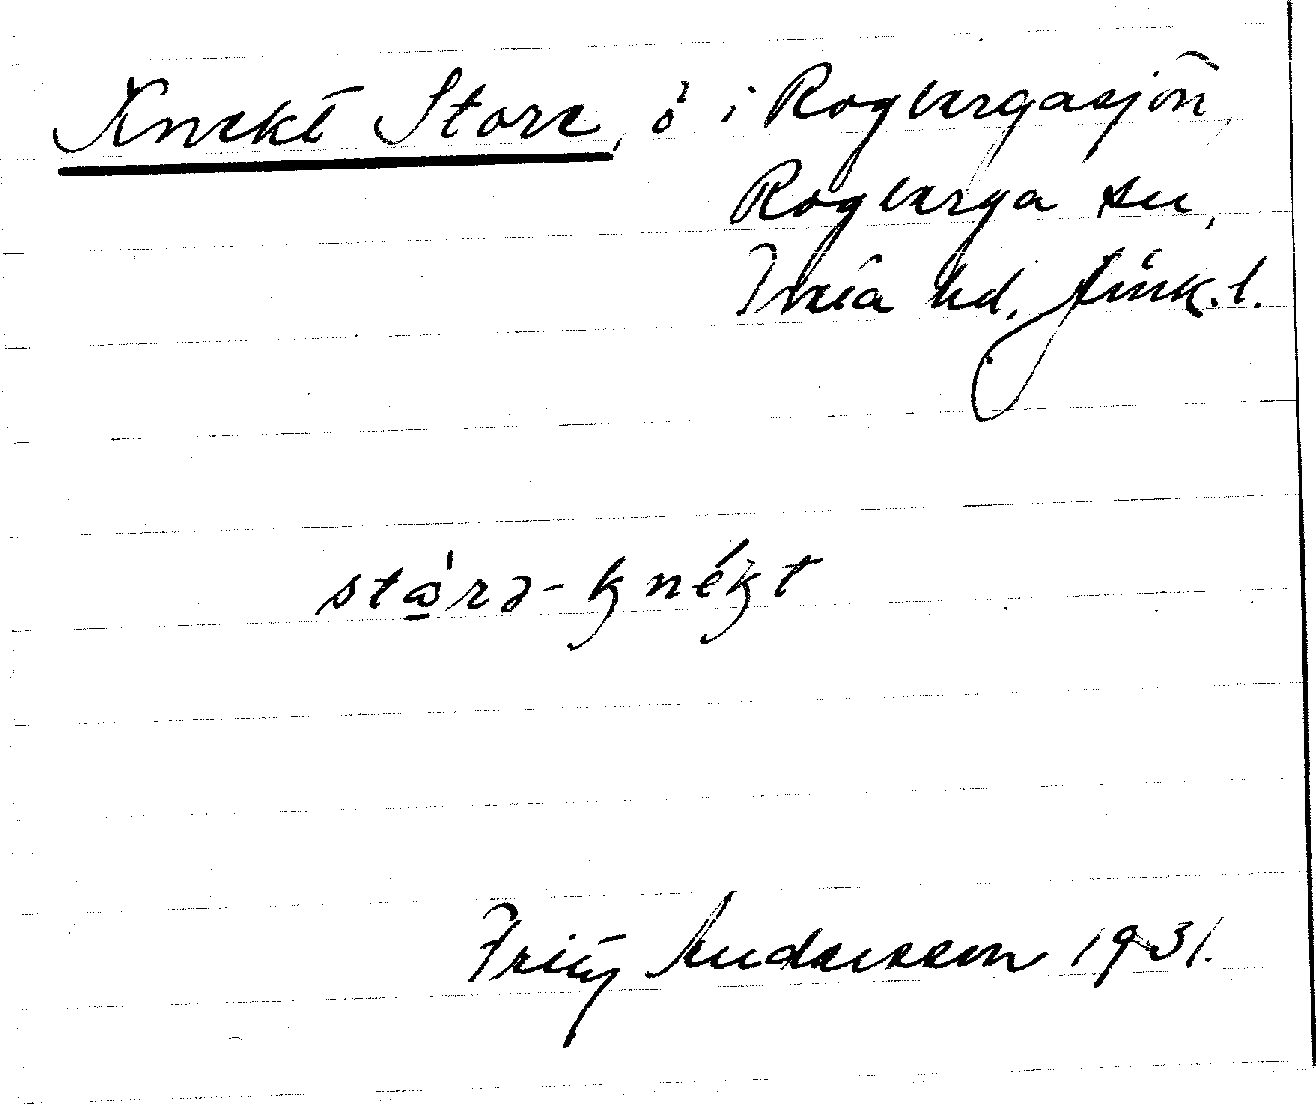 Knekt Store, ö i Rogbergasjön,
Rogberga sn,
Tveta hd. Jönk. l.
stårə-knékt
Fritz Andersson 1931.